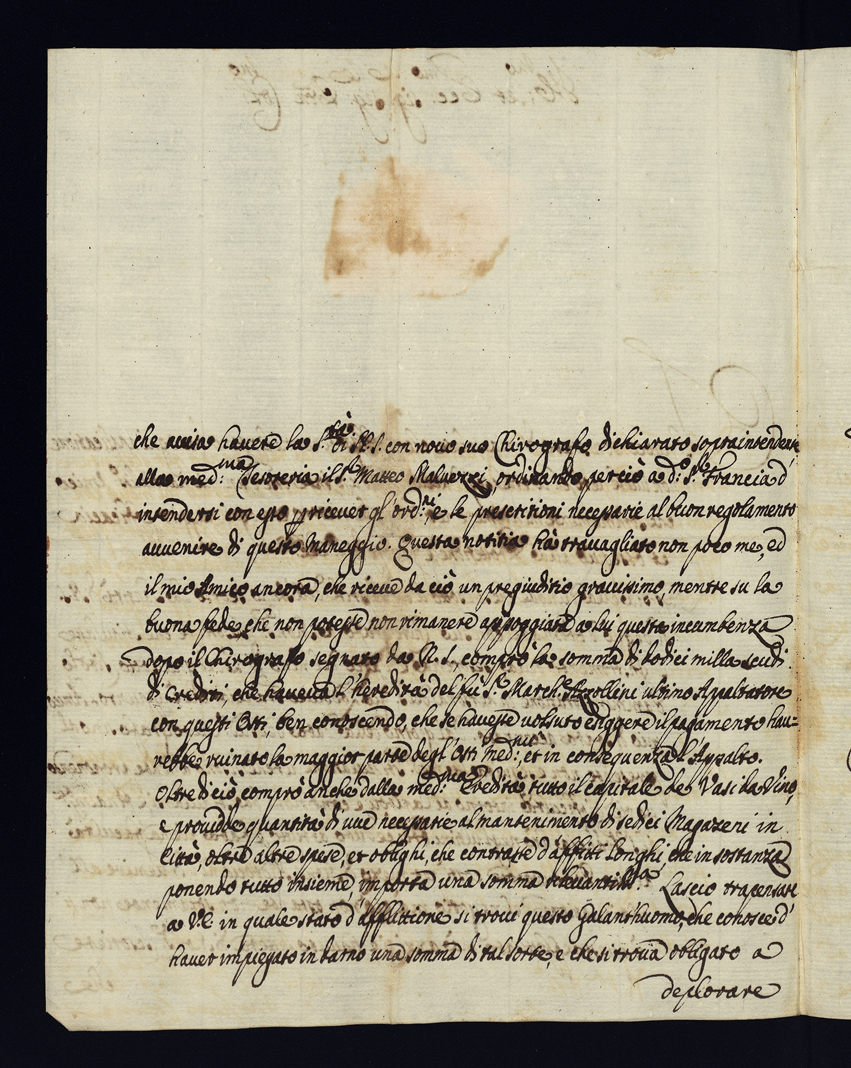 che avvisa havere la S.tà di N. S. con novo suo Chirografo dichiarato sopraintendente
alla med.ma Tesoreria il S.r Matteo Malvezzi, ordinando perciò a d.o S.r Francia d'
intendersi con esso p ricever gl'ord.ni e le prescrittioni necessarie al buon regolamento
avvenire di questo maneggio. Questa notitia hà travagliato non poco me, ed
il mio Amico ancora, che riceve da ciò un pregiuditio gravissimo, mentre su la
buona fede, che non potesse non rimanere appoggiata a lui questa incumbenza
dopo il Chirografo segnato da N. S., comprò la somma di dodici milla scudi
di Crediti, che haveva l'heredità del fù S.r March.e Apollini ultimo Appaltatore
con questi Osti, ben conoscendo, che se havesse voluto esiggere il pagamento hau-
rebbe ruinato la maggior parte degl'Osti med.mi, et in conseguenza l'Appalto.
Oltre di ciò, comprò anche dalla med.ma Eredità tutto il capitale de Vasi da Vino,
e providde quantità di uve necessarie al mantenimento di sedici Magazeni in
Città, oltre altre spese, et oblighi, che contrasse d'affitti longhi, che in sostanza
ponendo tutto insieme importa una somma rilevantiss.a Lascio trapensare
a V.E. in quale stato d'afflittione si trovi questo Galanthuomo, che conosce d'
haver impiegato in darno una somma di tal sorte, e che si trova obligato a
deplorare